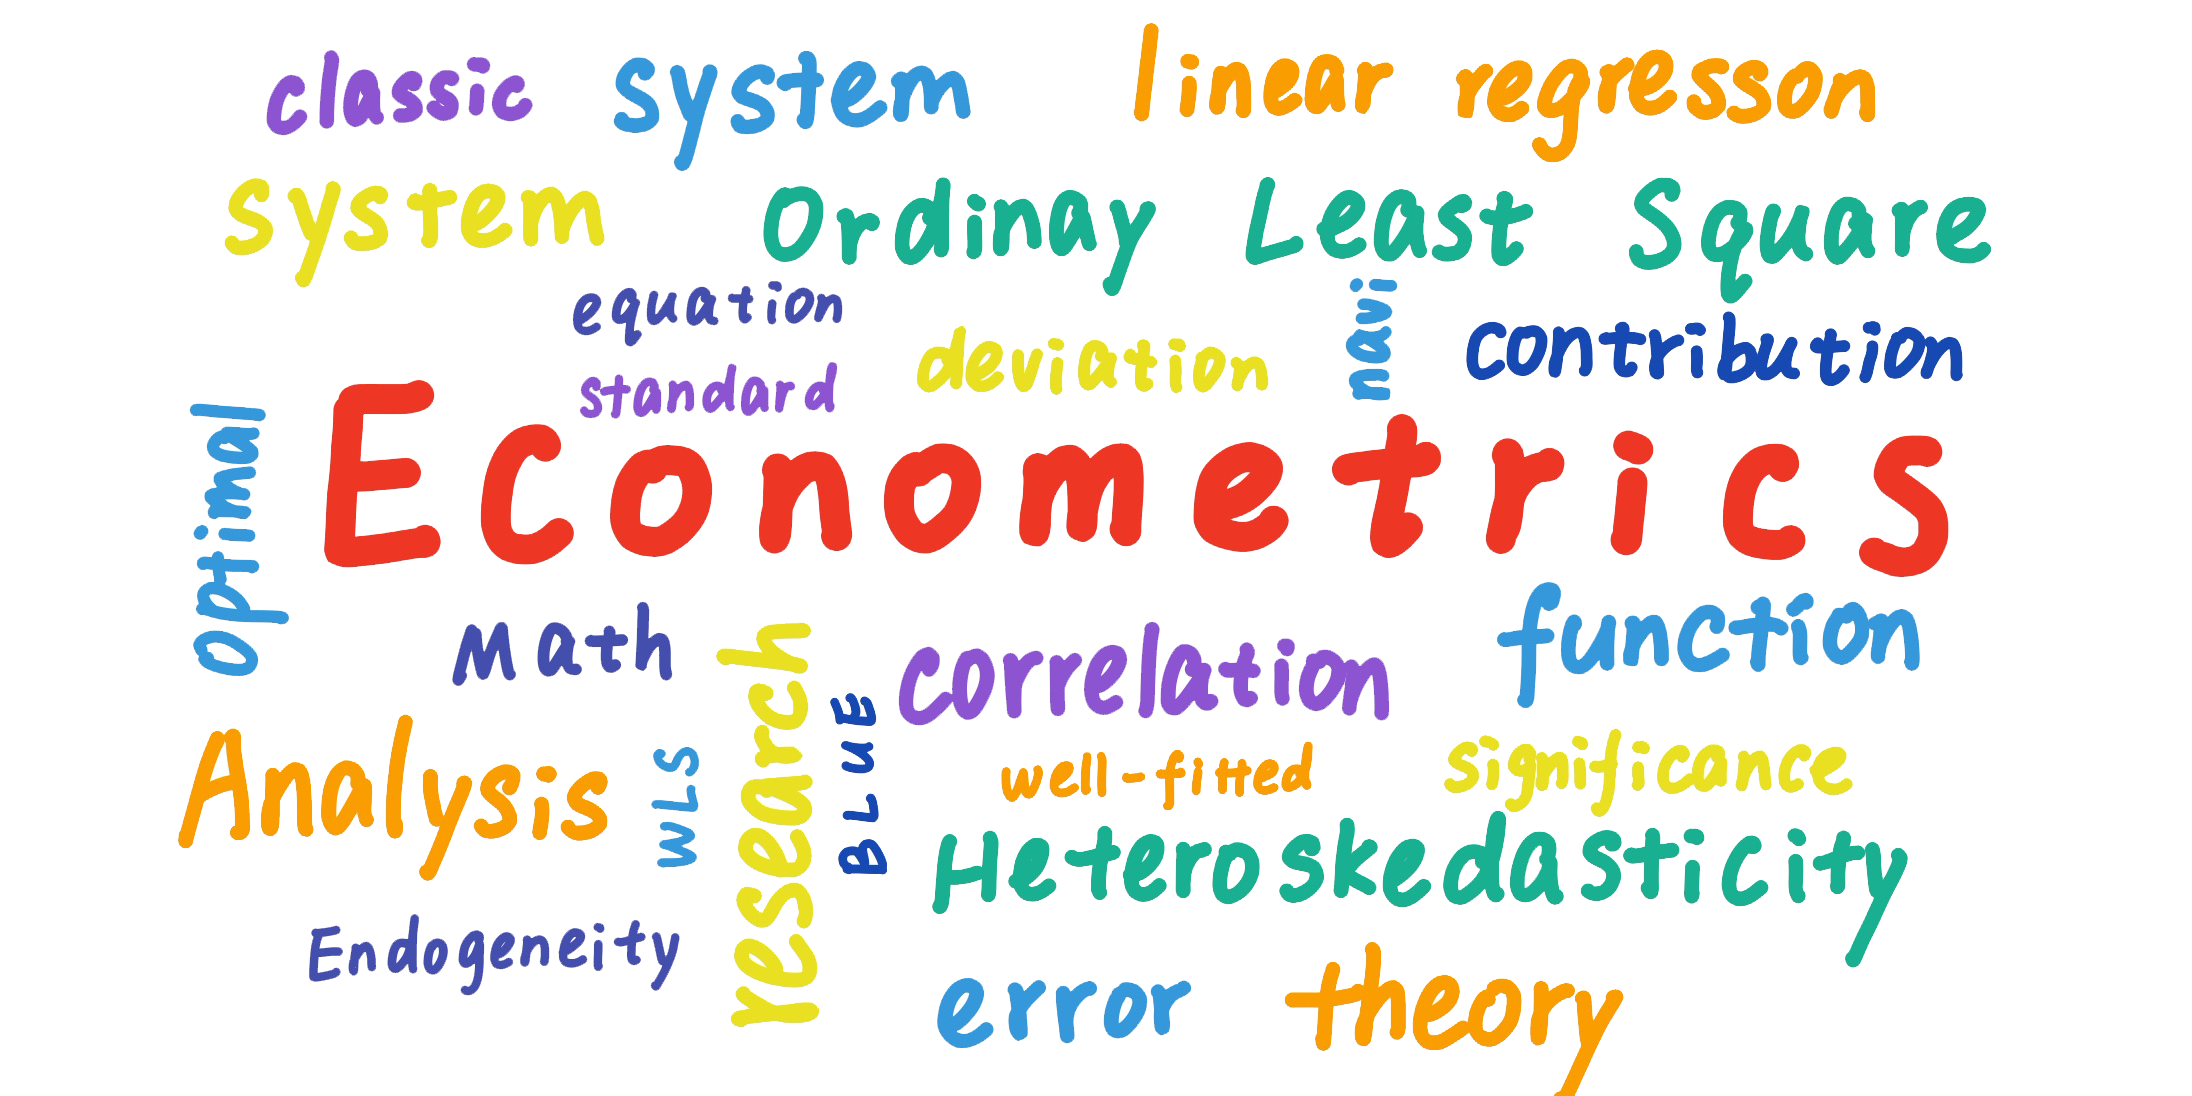 classic system linear regresson
system Ordinay Least Square
equation
navi
deviation
contribution
standard
optimal
Econometrics
Math
research
BLUE
correlation
function
Analysis
WLS
well-fitted
significance
Heteroskedasticity
Endogeneity
error theory